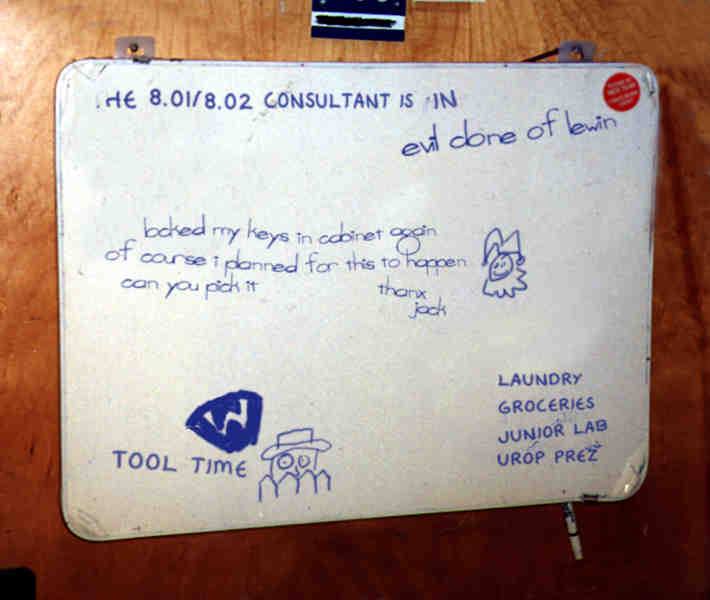 THE 8.01/8.02 CONSULTANT IS IN
evil clone of lewin
locked my keys in cabinet again
of course i planned for this to happen
can you pick it
thanx
jack
W
TOOL TIME
LAUNDRY
GROCERIES
JUNIOR LAB
UROP PREZ